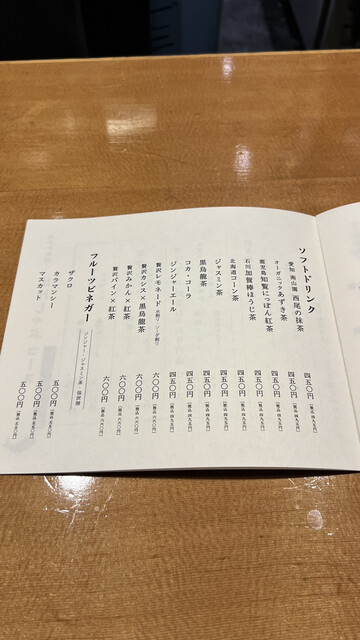 ソフトドリンク
愛知 南山園 西尾の抹茶 四五〇円 (税込 四九五円)
オーガニックあずき茶 四五〇円 (税込 四九五円)
鹿児島 知覧にっぽん紅茶 四五〇円 (税込 四九五円)
石川 加賀棒ほうじ茶 四五〇円 (税込 四九五円)
北海道コーン茶 四五〇円 (税込 四九五円)
ジャスミン茶 四五〇円 (税込 四九五円)
黒烏龍茶 四五〇円 (税込 四九五円)
コカ・コーラ 四五〇円 (税込 四九五円)
ジンジャーエール 四五〇円 (税込 四九五円)
贅沢レモネード 水割り・ソーダ割り 六〇〇円 (税込 六六〇円)
贅沢カシス×黒烏龍茶 六〇〇円 (税込 六六〇円)
贅沢みかん×紅茶 六〇〇円 (税込 六六〇円)
贅沢パイン×紅茶 六〇〇円 (税込 六六〇円)
フルーツビネガー
ザクロ 五〇〇円 (税込 五五〇円)
カラマンシー 五〇〇円 (税込 五五〇円)
マスカット 五〇〇円 (税込 五五〇円)